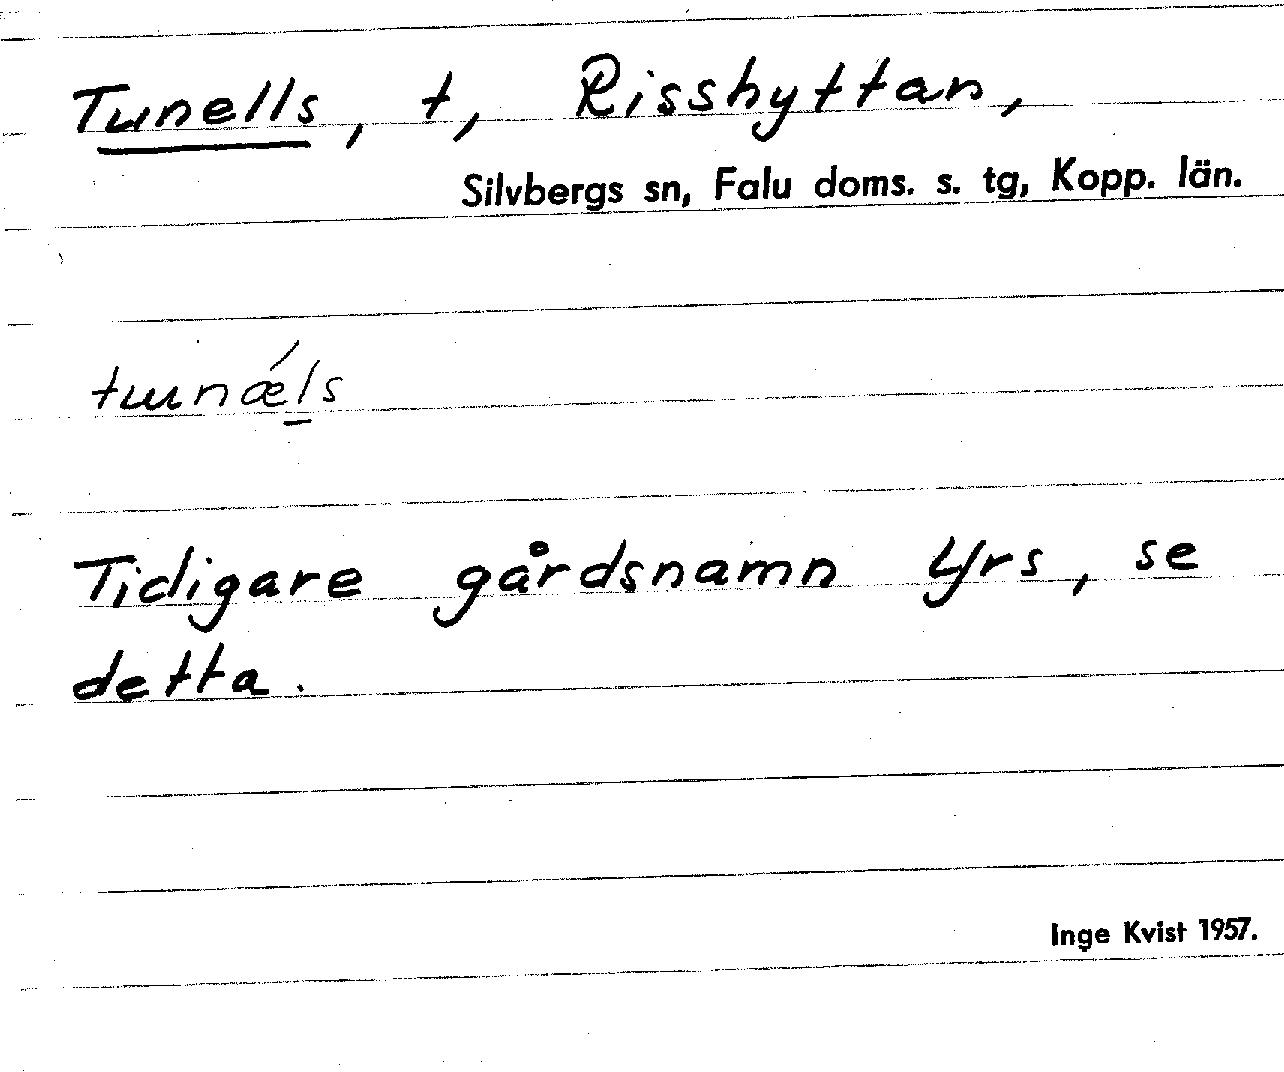 Tunells, t, Risshyttan,
Silvbergs sn, Falu doms. s. tg, Kopp. län.
tɯnǽl̠s
Tidigare gårdsnamn Yrs, se
detta.
Inge Kvist 1957.